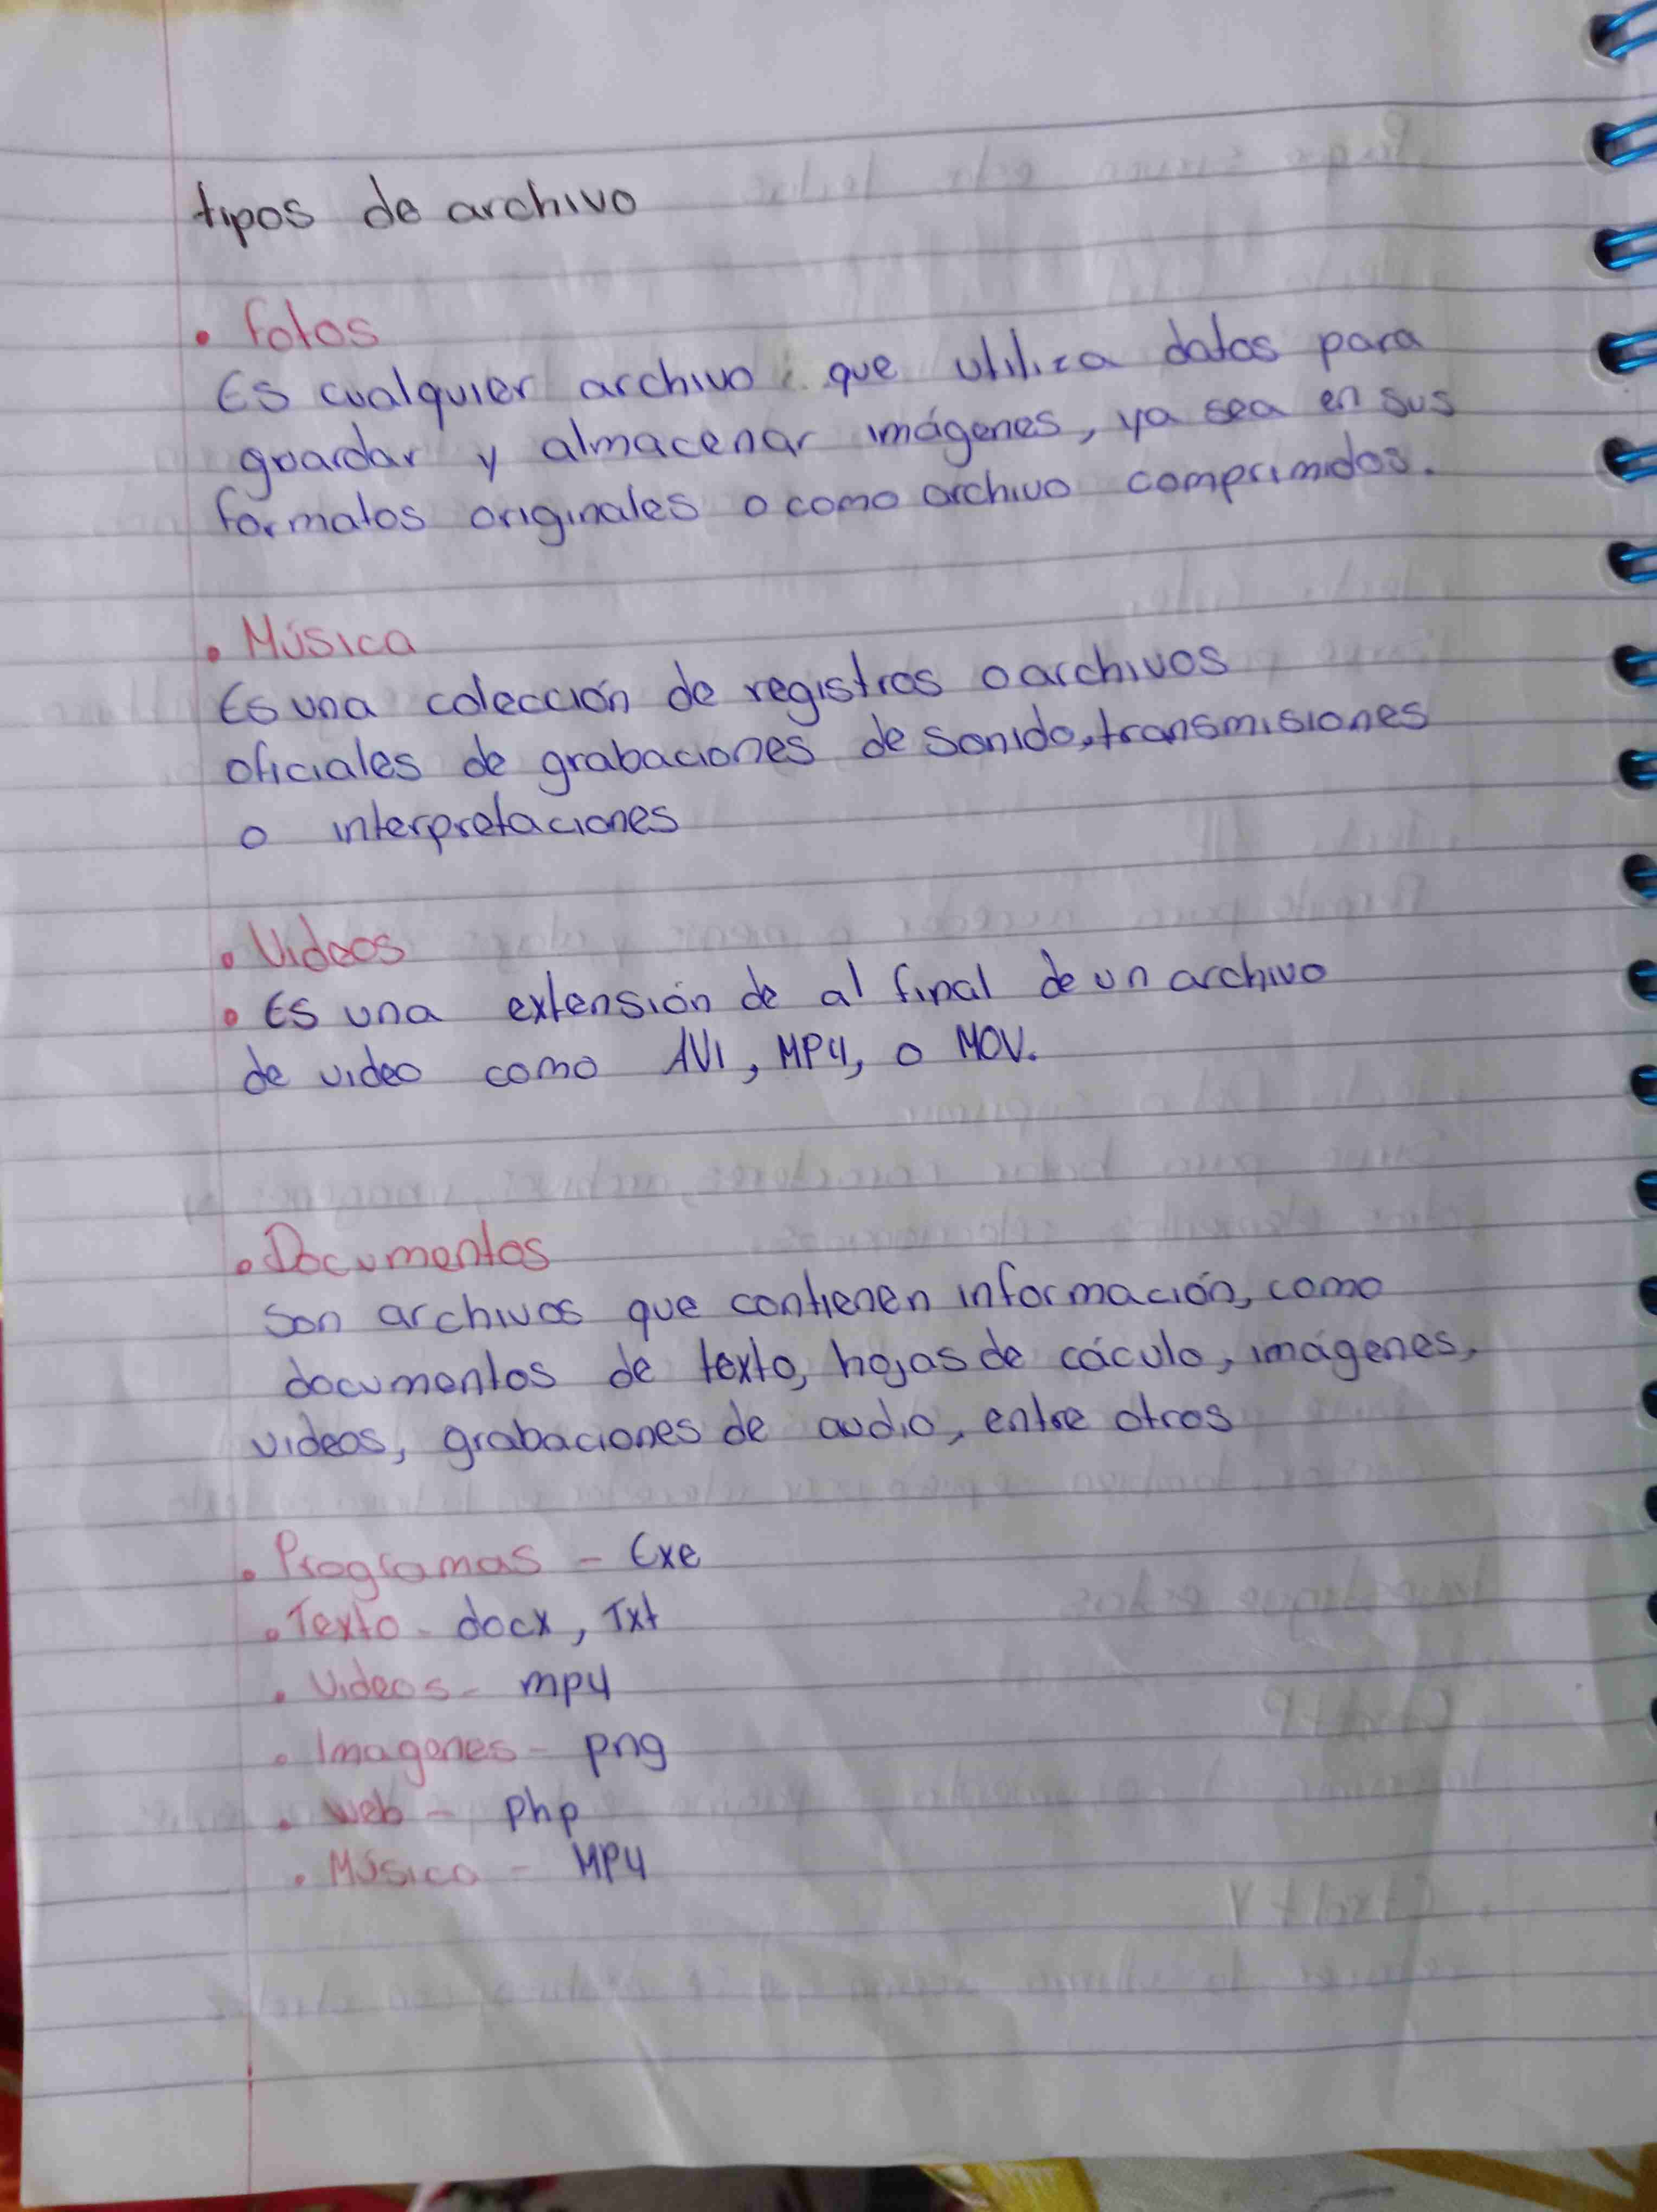 tipos de archivo
• fotos
Es cualquier archivo que utiliza datos para
guardar y almacenar imágenes, ya sea en sus
formatos originales o como archivo comprimidos.
• Música
Es una colección de registros o archivos
oficiales de grabaciones de sonido, transmisiones
o interpretaciones
• Videos
• Es una extensión de al final de un archivo
de video como AVI, MP4, o MOV.
• Documentos
Son archivos que contienen información, como
documentos de texto, hojas de cáculo, imágenes,
videos, grabaciones de audio, entre otros
• Programas - Exe
• Texto - docx, Txt
• Videos - mp4
• Imagenes - png
• web - php
• Música - MP4